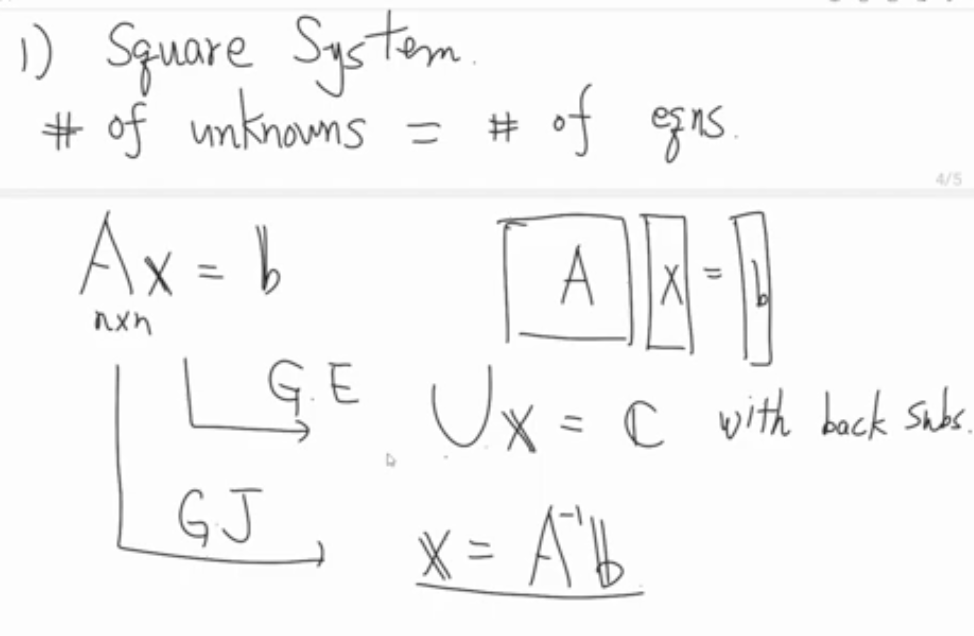 1) Square System.
# of unknowns = # of eqns.
4/5
Ax = b
nxn
A x = b
G.E
Ux = c with back subs.
G.J
x = A⁻¹b